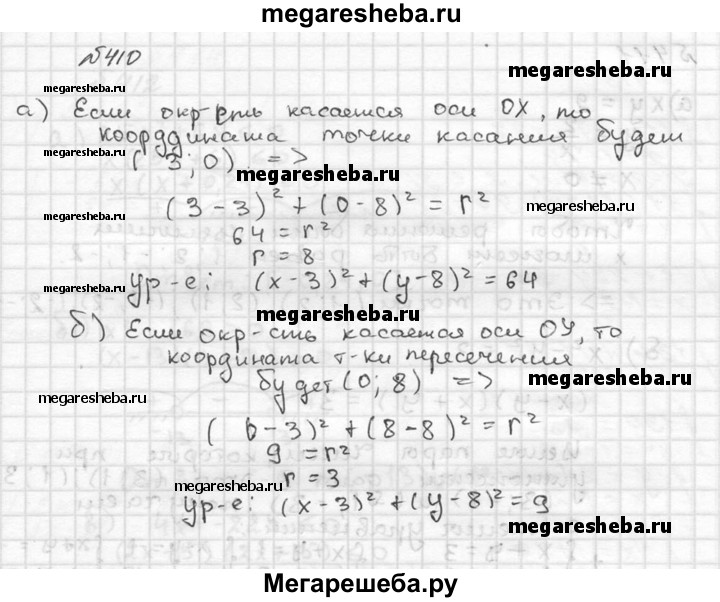 megaresheba.ru
№410
megaresheba.ru
megaresheba.ru
а) Если окр-сть касается оси OX, то
коорддината точки касания будет
megaresheba.ru
(3; 0) =>
megaresheba.ru
(3-3)² + (0-8)² = r²
megaresheba.ru
megaresheba.ru
64 = r²
r = 8
ур-е: (x-3)² + (y-8)² = 64
megaresheba.ru
б) Если окр-сть касается оси ОУ, то
megaresheba.ru
координата т-ки пересечения
будет (0; 8) =>
megaresheba.ru
megaresheba.ru
(0-3)² + (8-8)² = r²
9 = r²
r = 3
megaresheba.ru
ур-е: (x-3)² + (y-8)² = 9
megaresheba.ru
Мегарешеба.ру